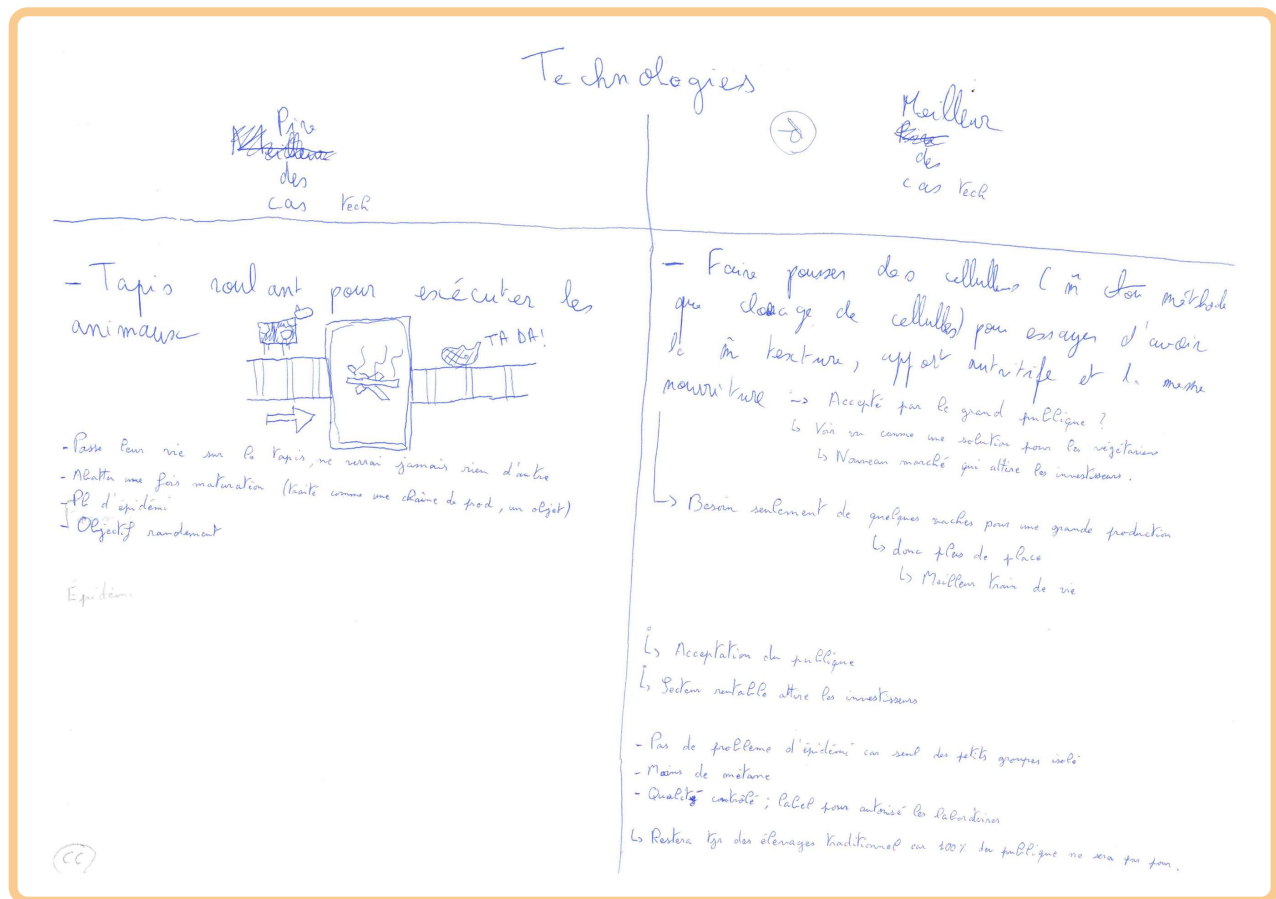 Technologies
Pire
Meilleur
des
cas tech
Meilleur
Pire
des
cas tech
- Tapis roulant pour exécuter les
animaux
TA DA!
- Passe leur vie sur le tapis, ne verrai jamais rien d'autre
- Abattu une fois maturation (traité comme une chaîne de prod, un objet)
- Pb d'épidémi
- Objectif randement
Épidém.
- Faire pousser des cellulles (m̂ méthode
que clonage de cellulles) pour essayer d'avoir
la m̂ texture, apport nutritife et l. mesme
nourriture -> Accepté par le grand publique ?
↳ Voir vu comme une solution pour les végétariens
↳ Nouveau marché qui attire les investisseurs.
↳ Besoin seulement de quelques vaches pour une grande production
↳ donc plus de place
↳ Meilleur train de vie
↳ Acceptation du publique
↳ Secteur rentable attire les investisseurs
- Pas de problème d'épidémi car seul des petits groupes isolé
- Moins de métane
- Qualité contrôlé ; label pour autorisé les laboratoires
↳ Restera tjr des élevages traditionnel car 100% du publique ne sera pas pour.
CC